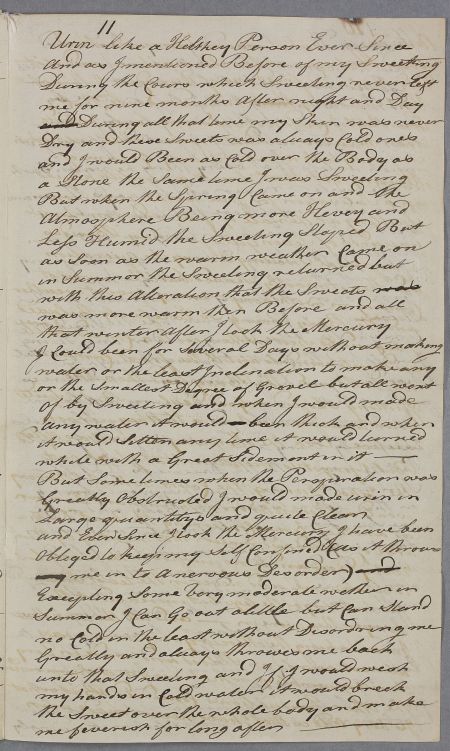 11
Urin like a Helthey Person Ever Since
And as I mentioned Before of my Sweeting
During the Cours which Sweeting never left
me for nine months After night and Day
and During all that time my Skin was never
Dry and these Sweets was always Cold ones
and I would Been as Cold over the Body as
a Stone the Same time I was Sweeting
But when the Spring Came on and the
Atmosphere Being more Hevey and
Less Humid the Sweeting Stoped But
as Soon as the warm weather Came on
in Summor the Sweeting returned but
with this Alteration that the Sweets was
was more warm then Before and all
that winter After I took the Mercury
I Could been for Several Days without making
water or the least Inclination to make any
or the Smallest Degree of Grovel but all went
of by Sweeting and when I would made
any water it would been thick and when
it would Setten any time it would turned
white with a Great Sidement in it
But Sometimes when the Perspiration was
Greatly Obstructed I would made urin in
Large quantitys and quite Clean
and Ever Since I took the Mercury I have been
Obliged to keep my Self Confined (as it throws
me in to a nervous Desorder) and
Excepting Some very moderate wether in
Summor I Can Go out a little but Can Stand
no Cold in the least without Disordring me
Greatly and always throwes me back
unto that Sweeting and if I would wesh
my hands in Cold water it would breck
the Sweet over the whole body and make
me feverish for long after